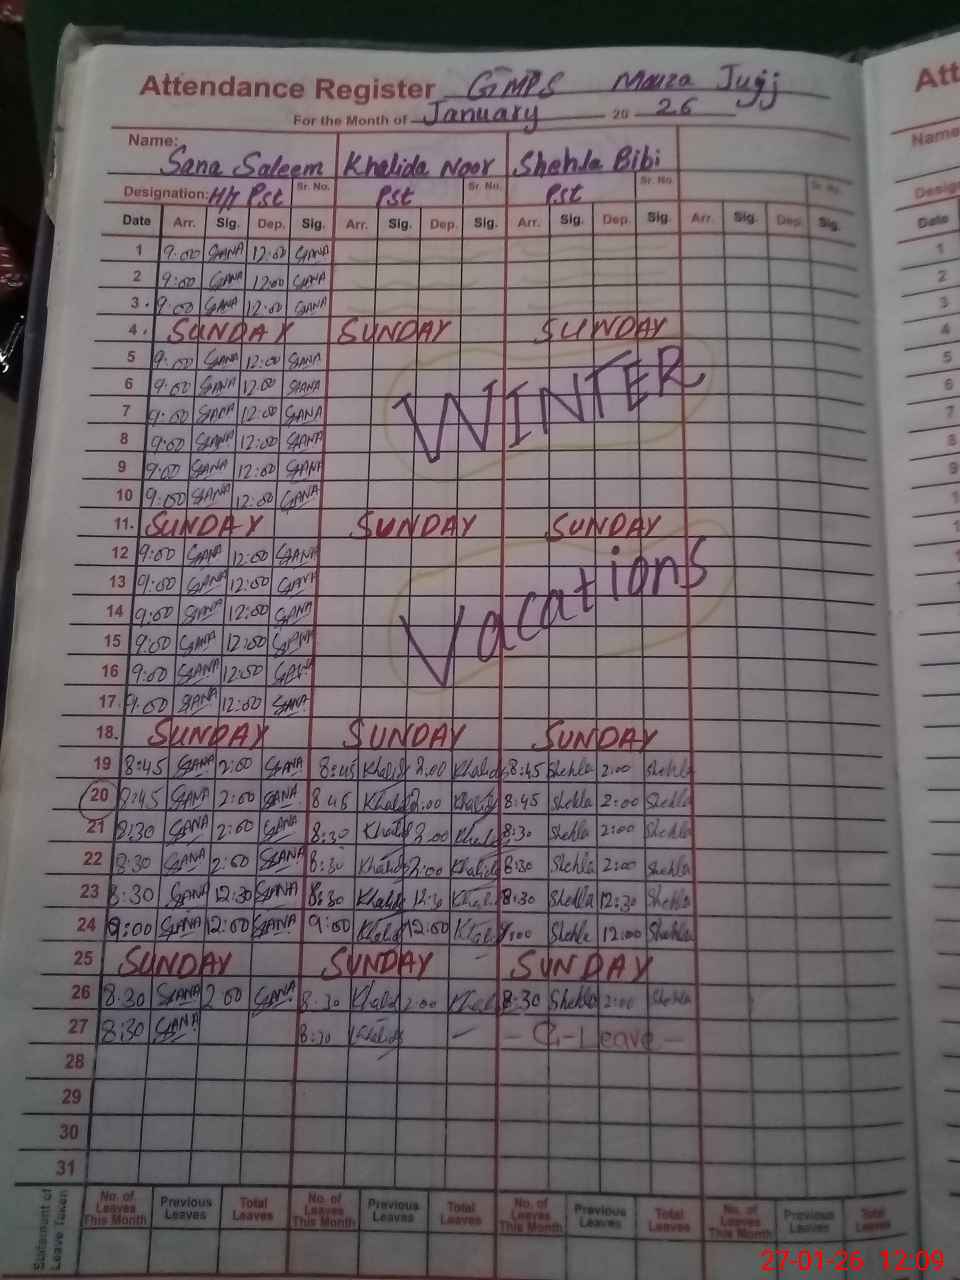 Attendance Register GMPS Mauza Jujj
For the Month of January 20 26
Name: Sana Saleem Khalida Noor Shehla Bibi
Designation: H/T Pst Sr. No. Pst Sr. No. Pst Sr. No. Sr. No.
Date Arr. Sig. Dep. Sig. Arr. Sig. Dep. Sig. Arr. Sig. Dep. Sig. Arr. Sig. Dep. Sig.
1 9:00 SANA 12:00 SANA
2 9:00 SANA 12:00 SANA
3 9:00 SANA 12:00 SANA
4 SUNDAY SUNDAY SUNDAY
5 9:00 SANA 12:00 SANA
6 9:00 SANA 12:00 SANA
WINTER
7 9:00 SANA 12:00 SANA
8 9:00 SANA 12:00 SANA
9 9:00 SANA 12:00 SANA
10 9:00 SANA 12:00 SANA
11 SUNDAY SUNDAY SUNDAY
12 9:00 SANA 12:00 SANA
13 9:00 SANA 12:00 SANA
14 9:00 SANA 12:00 SANA
Vacations
15 9:00 SANA 12:00 SANA
16 9:00 SANA 12:00 SANA
17 9:00 SANA 12:00 SANA
18 SUNDAY SUNDAY SUNDAY
19 8:45 SANA 2:00 SANA 8:45 Khalida 2:00 Khalida 8:45 Shehla 2:00 Shehla
20 8:45 SANA 2:00 SANA 8:45 Khalida 2:00 Khalida 8:45 Shehla 2:00 Shehla
21 8:30 SANA 2:00 SANA 8:30 Khalida 2:00 Khalida 8:30 Shehla 2:00 Shehla
22 8:30 SANA 2:00 SANA 8:30 Khalida 2:00 Khalida 8:30 Shehla 2:00 Shehla
23 8:30 SANA 12:30 SANA 8:30 Khalida 12:30 Khalida 8:30 Shehla 12:30 Shehla
24 9:00 SANA 12:00 SANA 9:00 Khalida 12:00 Khalida 9:00 Shehla 12:00 Shehla
25 SUNDAY SUNDAY SUNDAY
26 8:30 SANA 2:00 SANA 8:30 Khalida 2:00 Khalida 8:30 Shehla 2:00 Shehla
27 8:30 SANA 8:30 Khalida - C-Leave -
28
29
30
31
Statement of Leave Taken
No. of Leaves This Month Previous Leaves Total Leaves No. of Leaves This Month Previous Leaves Total Leaves No. of Leaves This Month Previous Leaves Total Leaves No. of Leaves This Month Previous Leaves Total Leaves
27-01-26 12:09